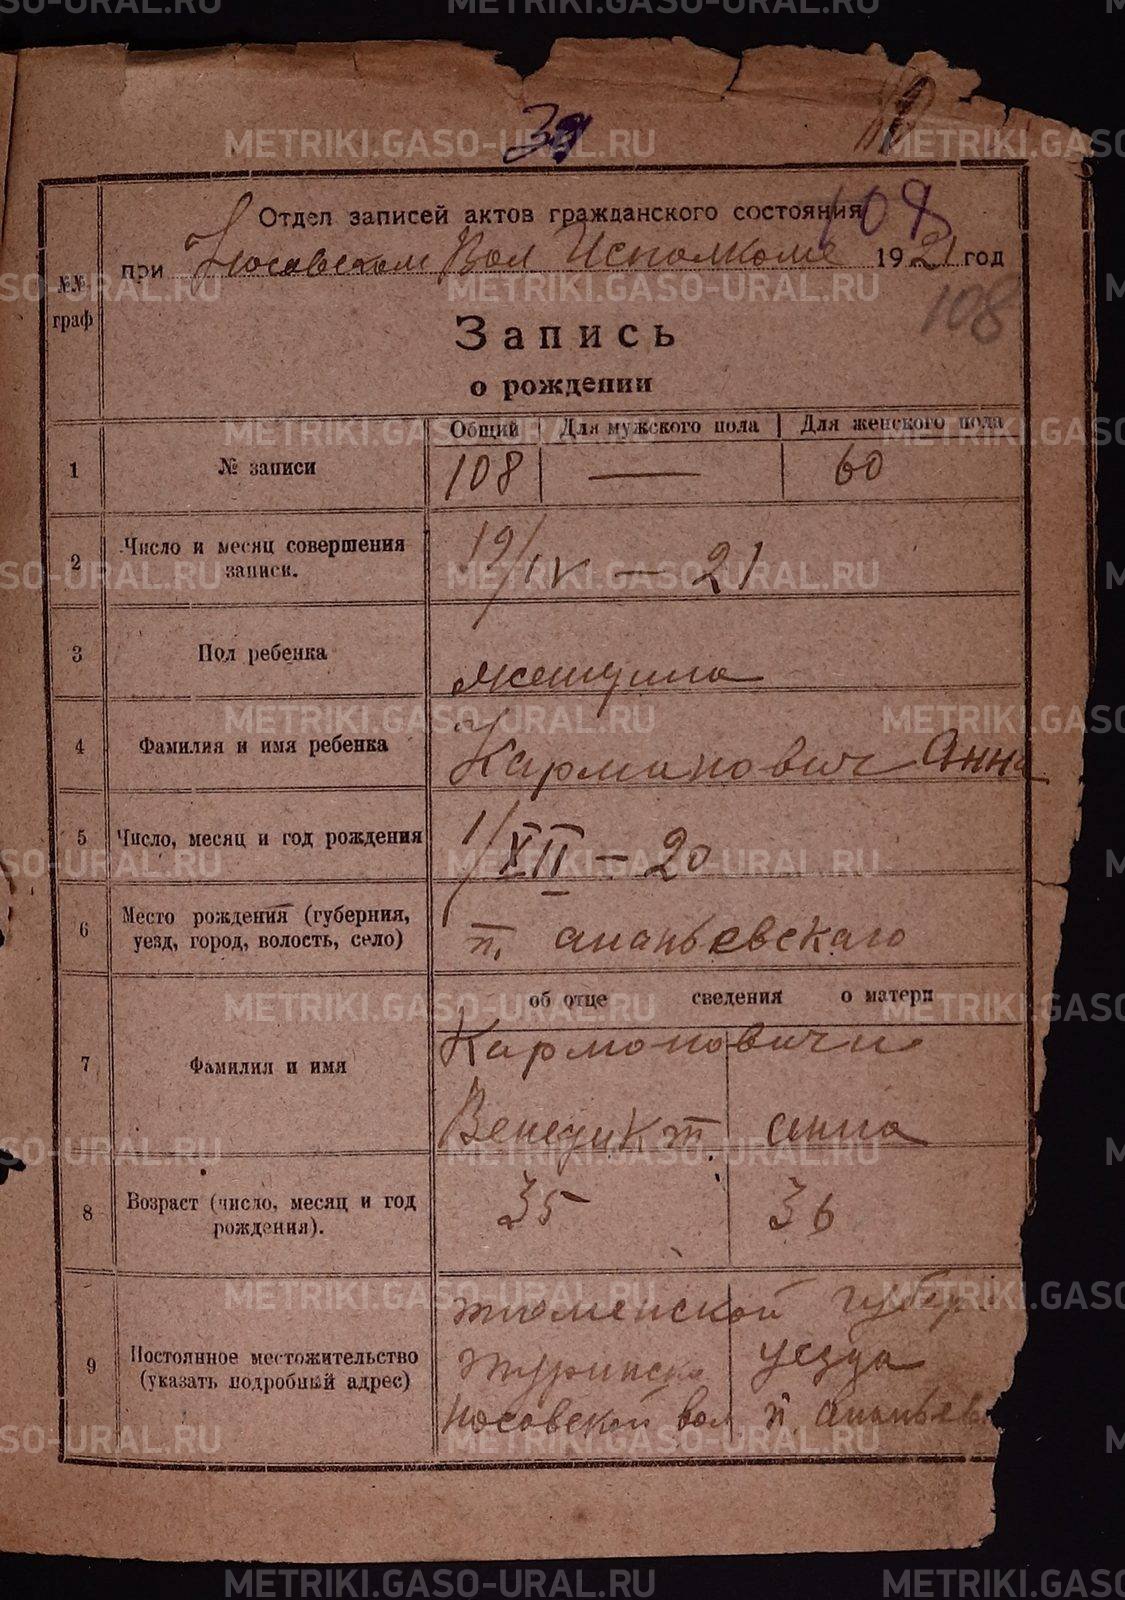 METRIKI.GASO-URAL.RU
39
108
Отдел записей актов гражданского состояния
при Носовском Вол Исполкоме 1921 год
108
№№ граф
Запись
о рождении
Общий Для мужского пола Для женского пола
1 № записи 108 — 60
2 Число и месяц совершения записи. 19/IV — 21
3 Пол ребенка женщина
4 Фамилия и имя ребенка Карманович Анна
5 Число, месяц и год рождения 1/XII — 20
6 Место рождения (губерния, уезд, город, волость, село) п. ананьевскаго
об отце сведения о матери
7 Фамилия и имя Кармоновичи
Венедикт. анна
8 Возраст (число, месяц и год рождения). 35 36
9 Постоянное местожительство (указать подробный адрес) тюменской губер
Туринско уезда
Носовской вол п ананьев